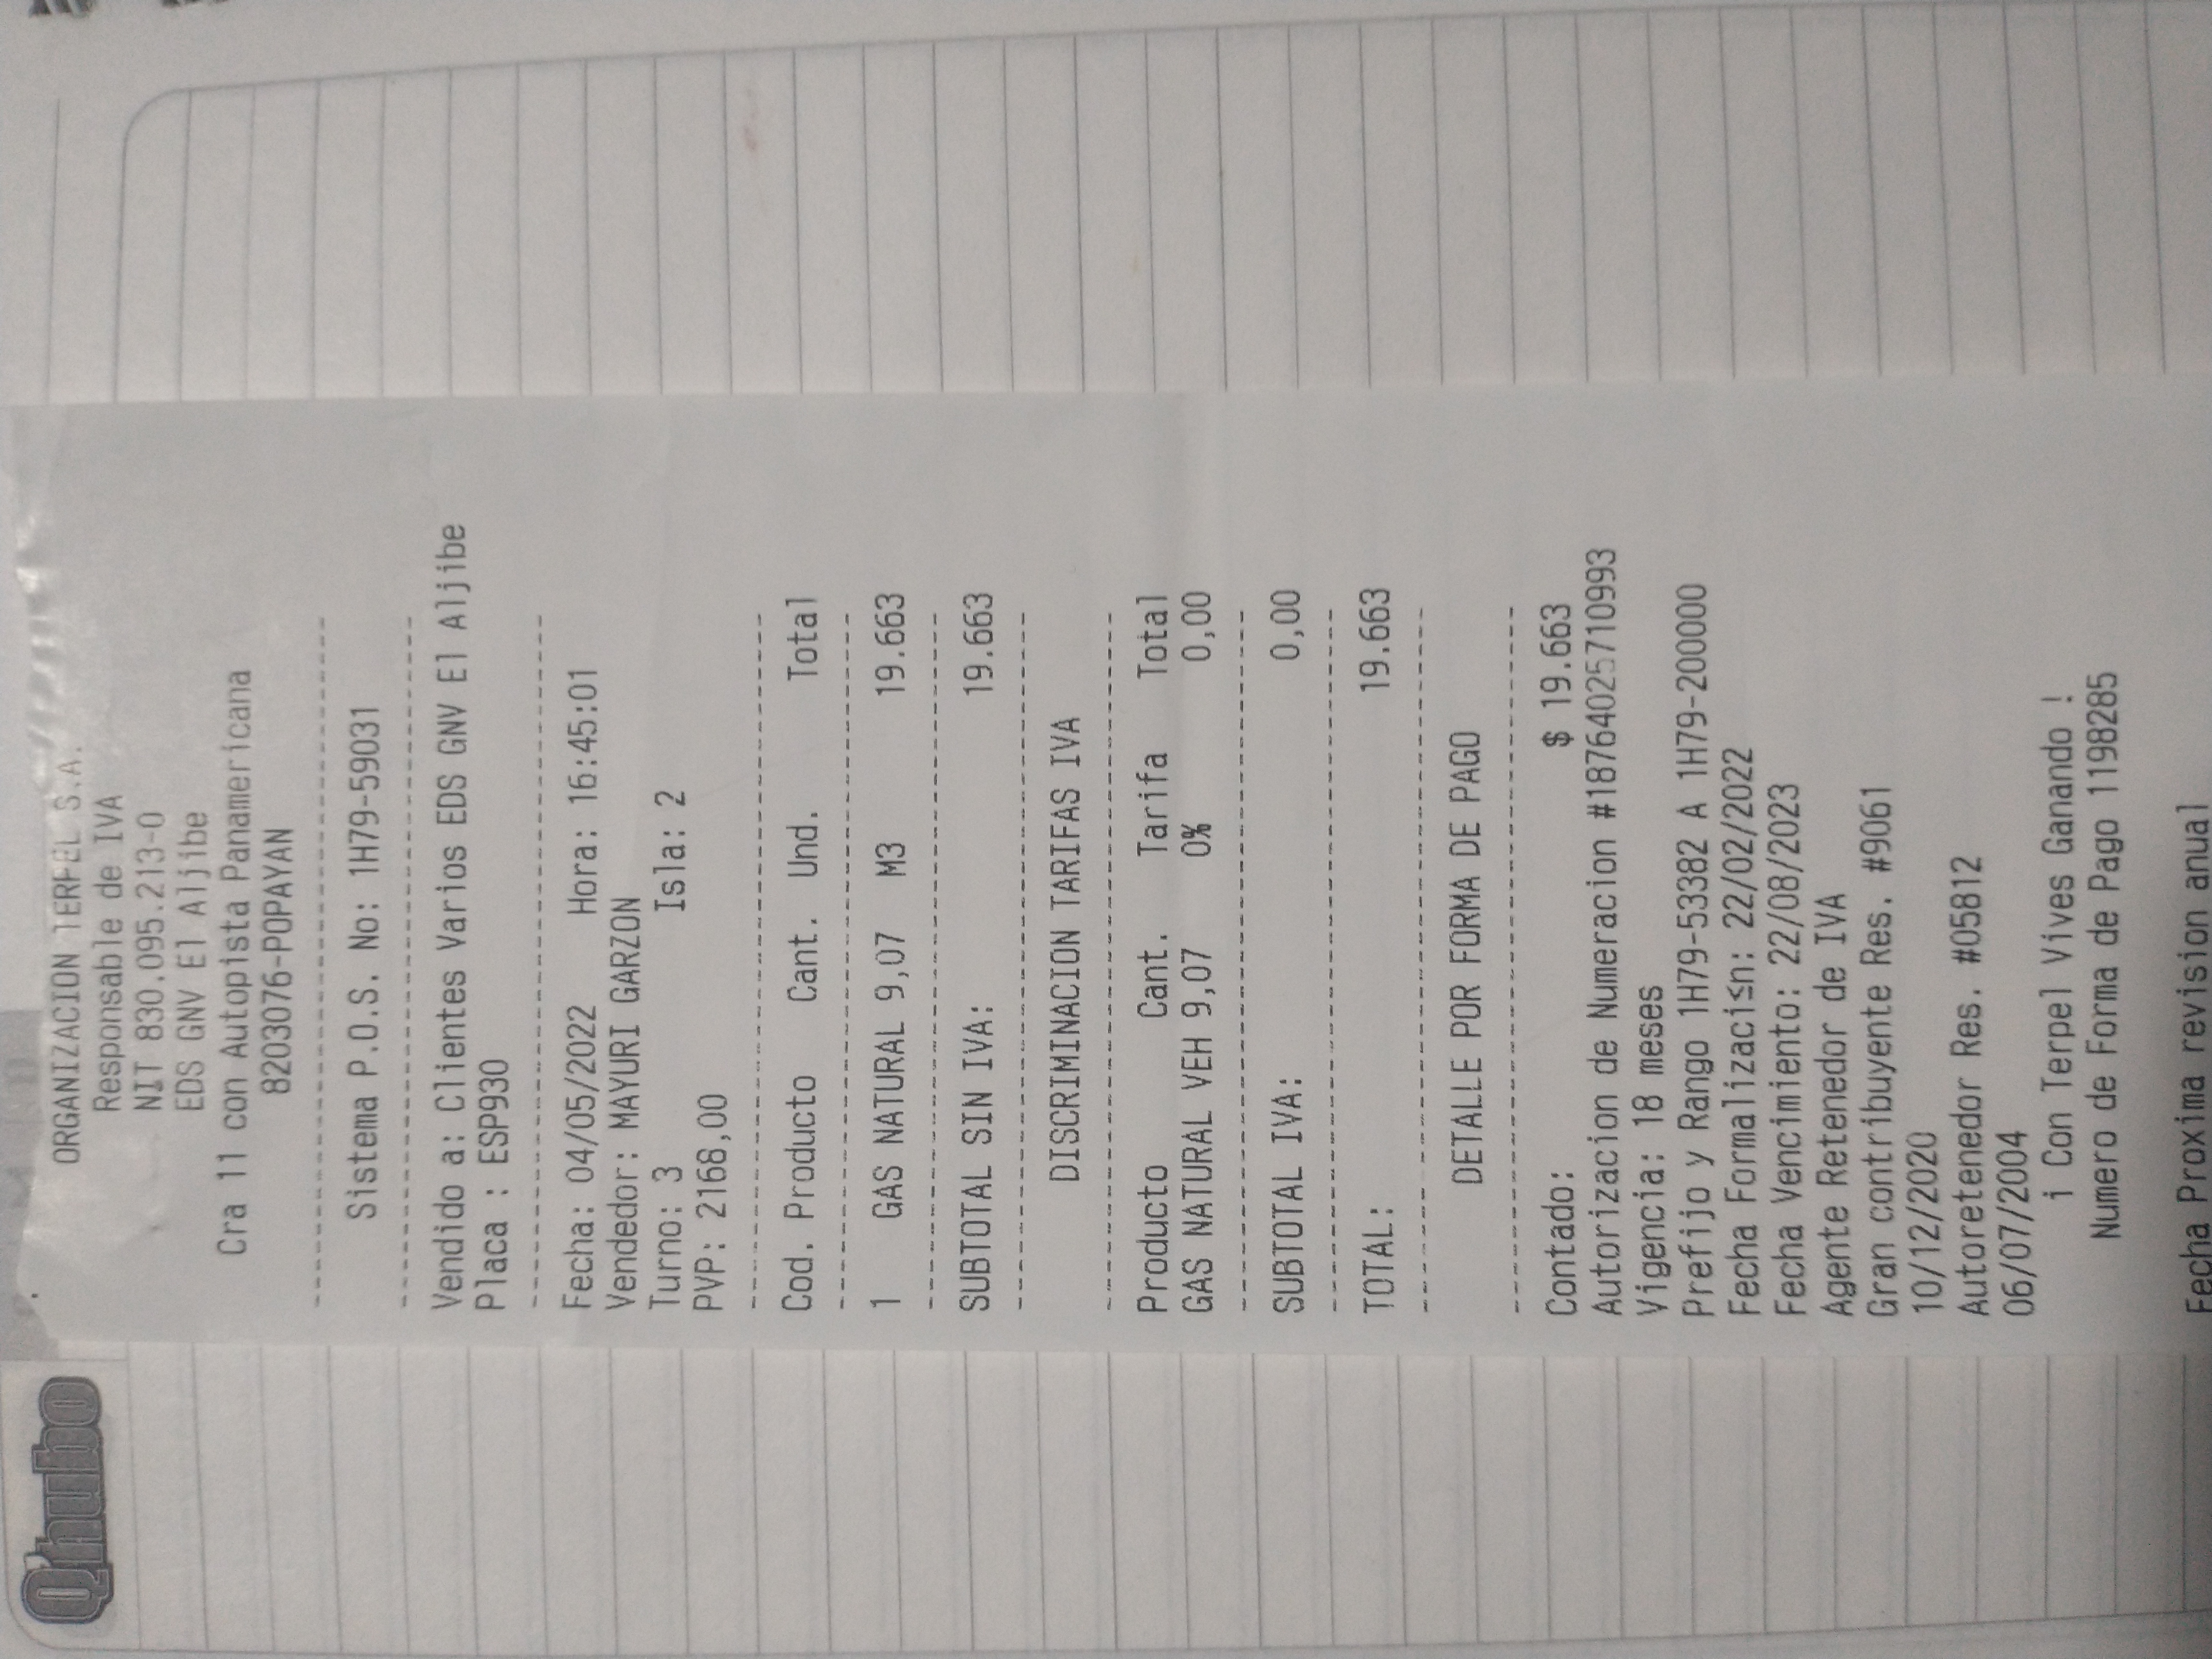 Q'hubo
ORGANIZACION TERPEL S.A.
Responsable de IVA
NIT 830.095.213-0
EDS GNV El Aljibe
Cra 11 con Autopista Panamericana
8203076-POPAYAN
Sistema P.O.S. No: 1H79-59031
Vendido a: Clientes Varios EDS GNV El Aljibe
Placa : ESP930
Fecha: 04/05/2022 Hora: 16:45:01
Vendedor: MAYURI GARZON
Turno: 3 Isla: 2
PVP: 2168,00
Cod. Producto Cant. Und. Total
1 GAS NATURAL 9,07 M3 19.663
SUBTOTAL SIN IVA: 19.663
DISCRIMINACION TARIFAS IVA
Producto Cant. Tarifa Total
GAS NATURAL VEH 9,07 0% 0,00
SUBTOTAL IVA: 0,00
TOTAL: 19.663
DETALLE POR FORMA DE PAGO
Contado: $ 19.663
Autorizacion de Numeracion #18764025710993
Vigencia: 18 meses
Prefijo y Rango 1H79-53382 A 1H79-200000
Fecha Formalizaci≤n: 22/02/2022
Fecha Vencimiento: 22/08/2023
Agente Retenedor de IVA
Gran contribuyente Res. #9061
10/12/2020
Autoretenedor Res. #05812
06/07/2004
¡ Con Terpel Vives Ganando !
Numero de Forma de Pago 1198285
Fecha Proxima revision anual